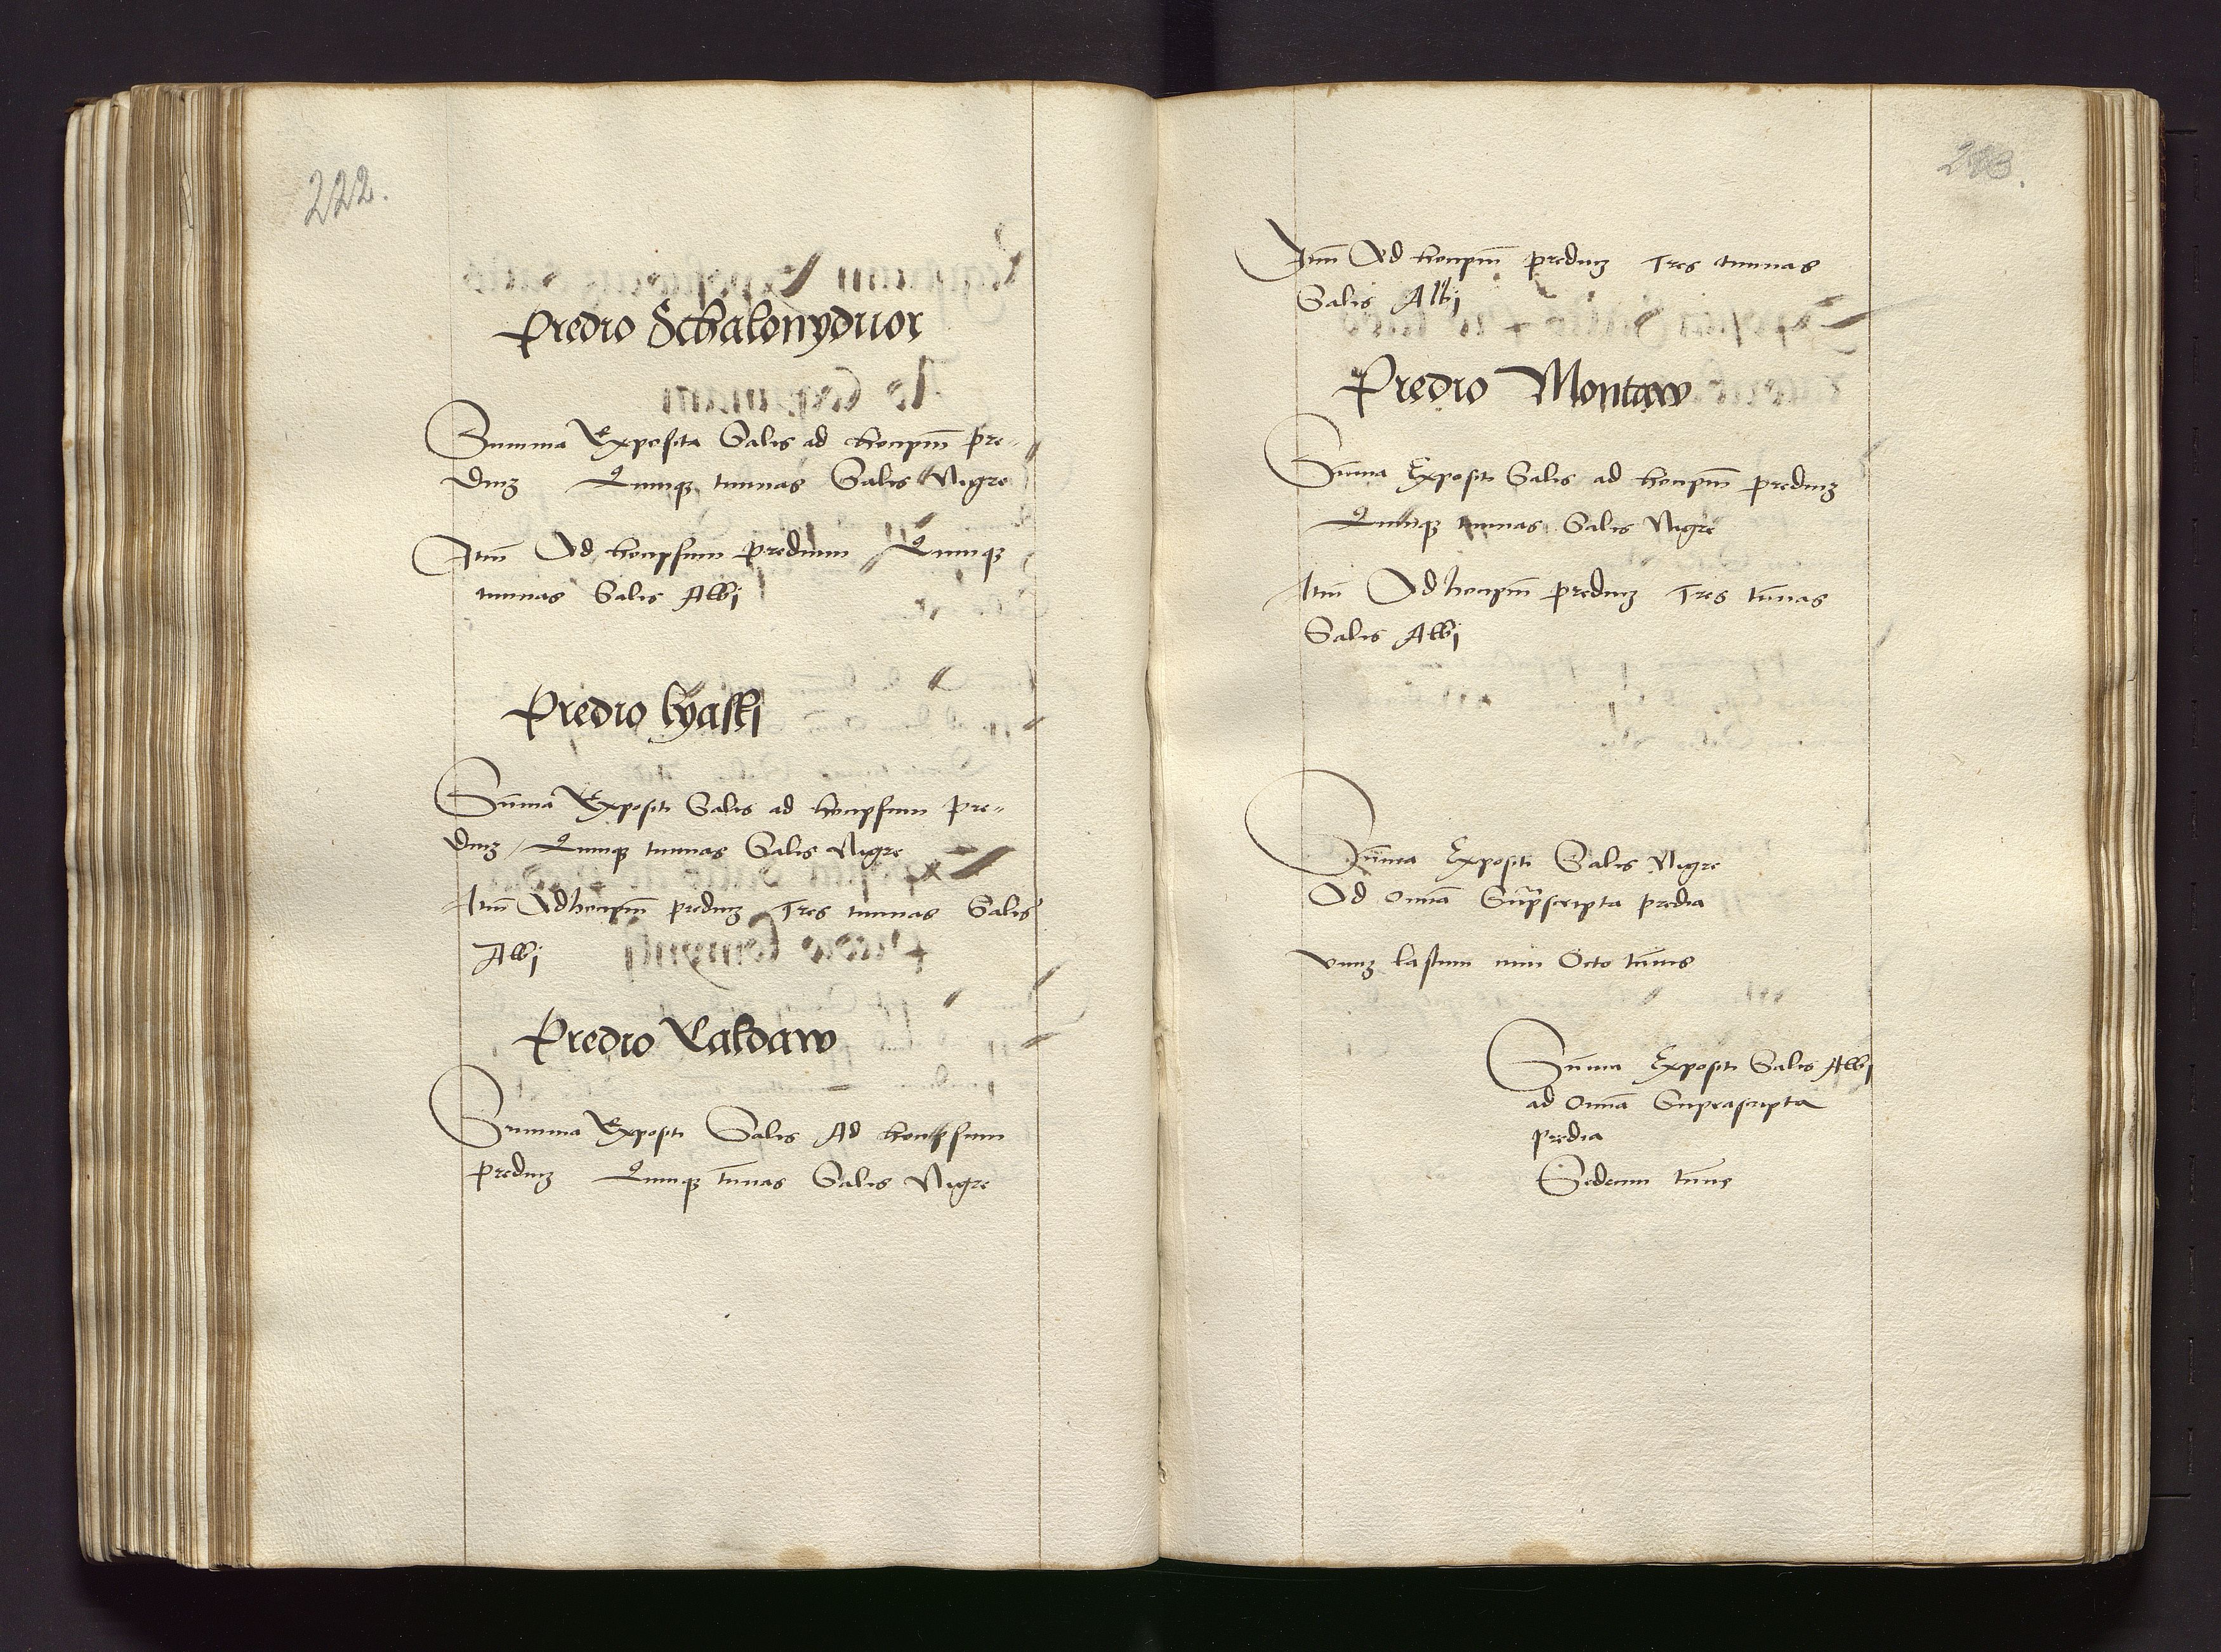 222.
Predio Schalonyduor
Summa Exposita Salis ad hocipm̄ pre-
diuʒ Quinqʒ tunnas Salis Nigre
Itm̄ Ad hocipsum predium Quinqʒ
tunnas Salis Albj
Predio lyasskj
Sum̄a Expositi Salis ad hocipsum pre-
diuʒ / Quinqʒ tunnas Salis Nigre
Itm̄ Ad hocipm̄ prediuʒ Tres tunnas Salis
Albj
Predio Caldaw
Summa Expositi Salis Ad hocipsum
prediuʒ Quinqʒ tun̄as Salis Nigre
223.
Itm̄ Ad hocipm̄ prediuʒ Tres tunnas
Salis Albj
Predio Montaw
Sum̄a Expositi Salis ad hocipm̄ prediuʒ
Quinqʒ tunnas Salis Nigre
Itm̄ Ad hocipm̄ prediuʒ Tres tun̄as
Salis Albj
Sum̄a Expositi Salis Nigre
Ad om̄ia Supscripta predia
vnuʒ lastum cum Octo tun̄is
Sum̄a Expositi Salis Albj
ad om̄ia Suprascripta
predia
Sedecim tun̄is